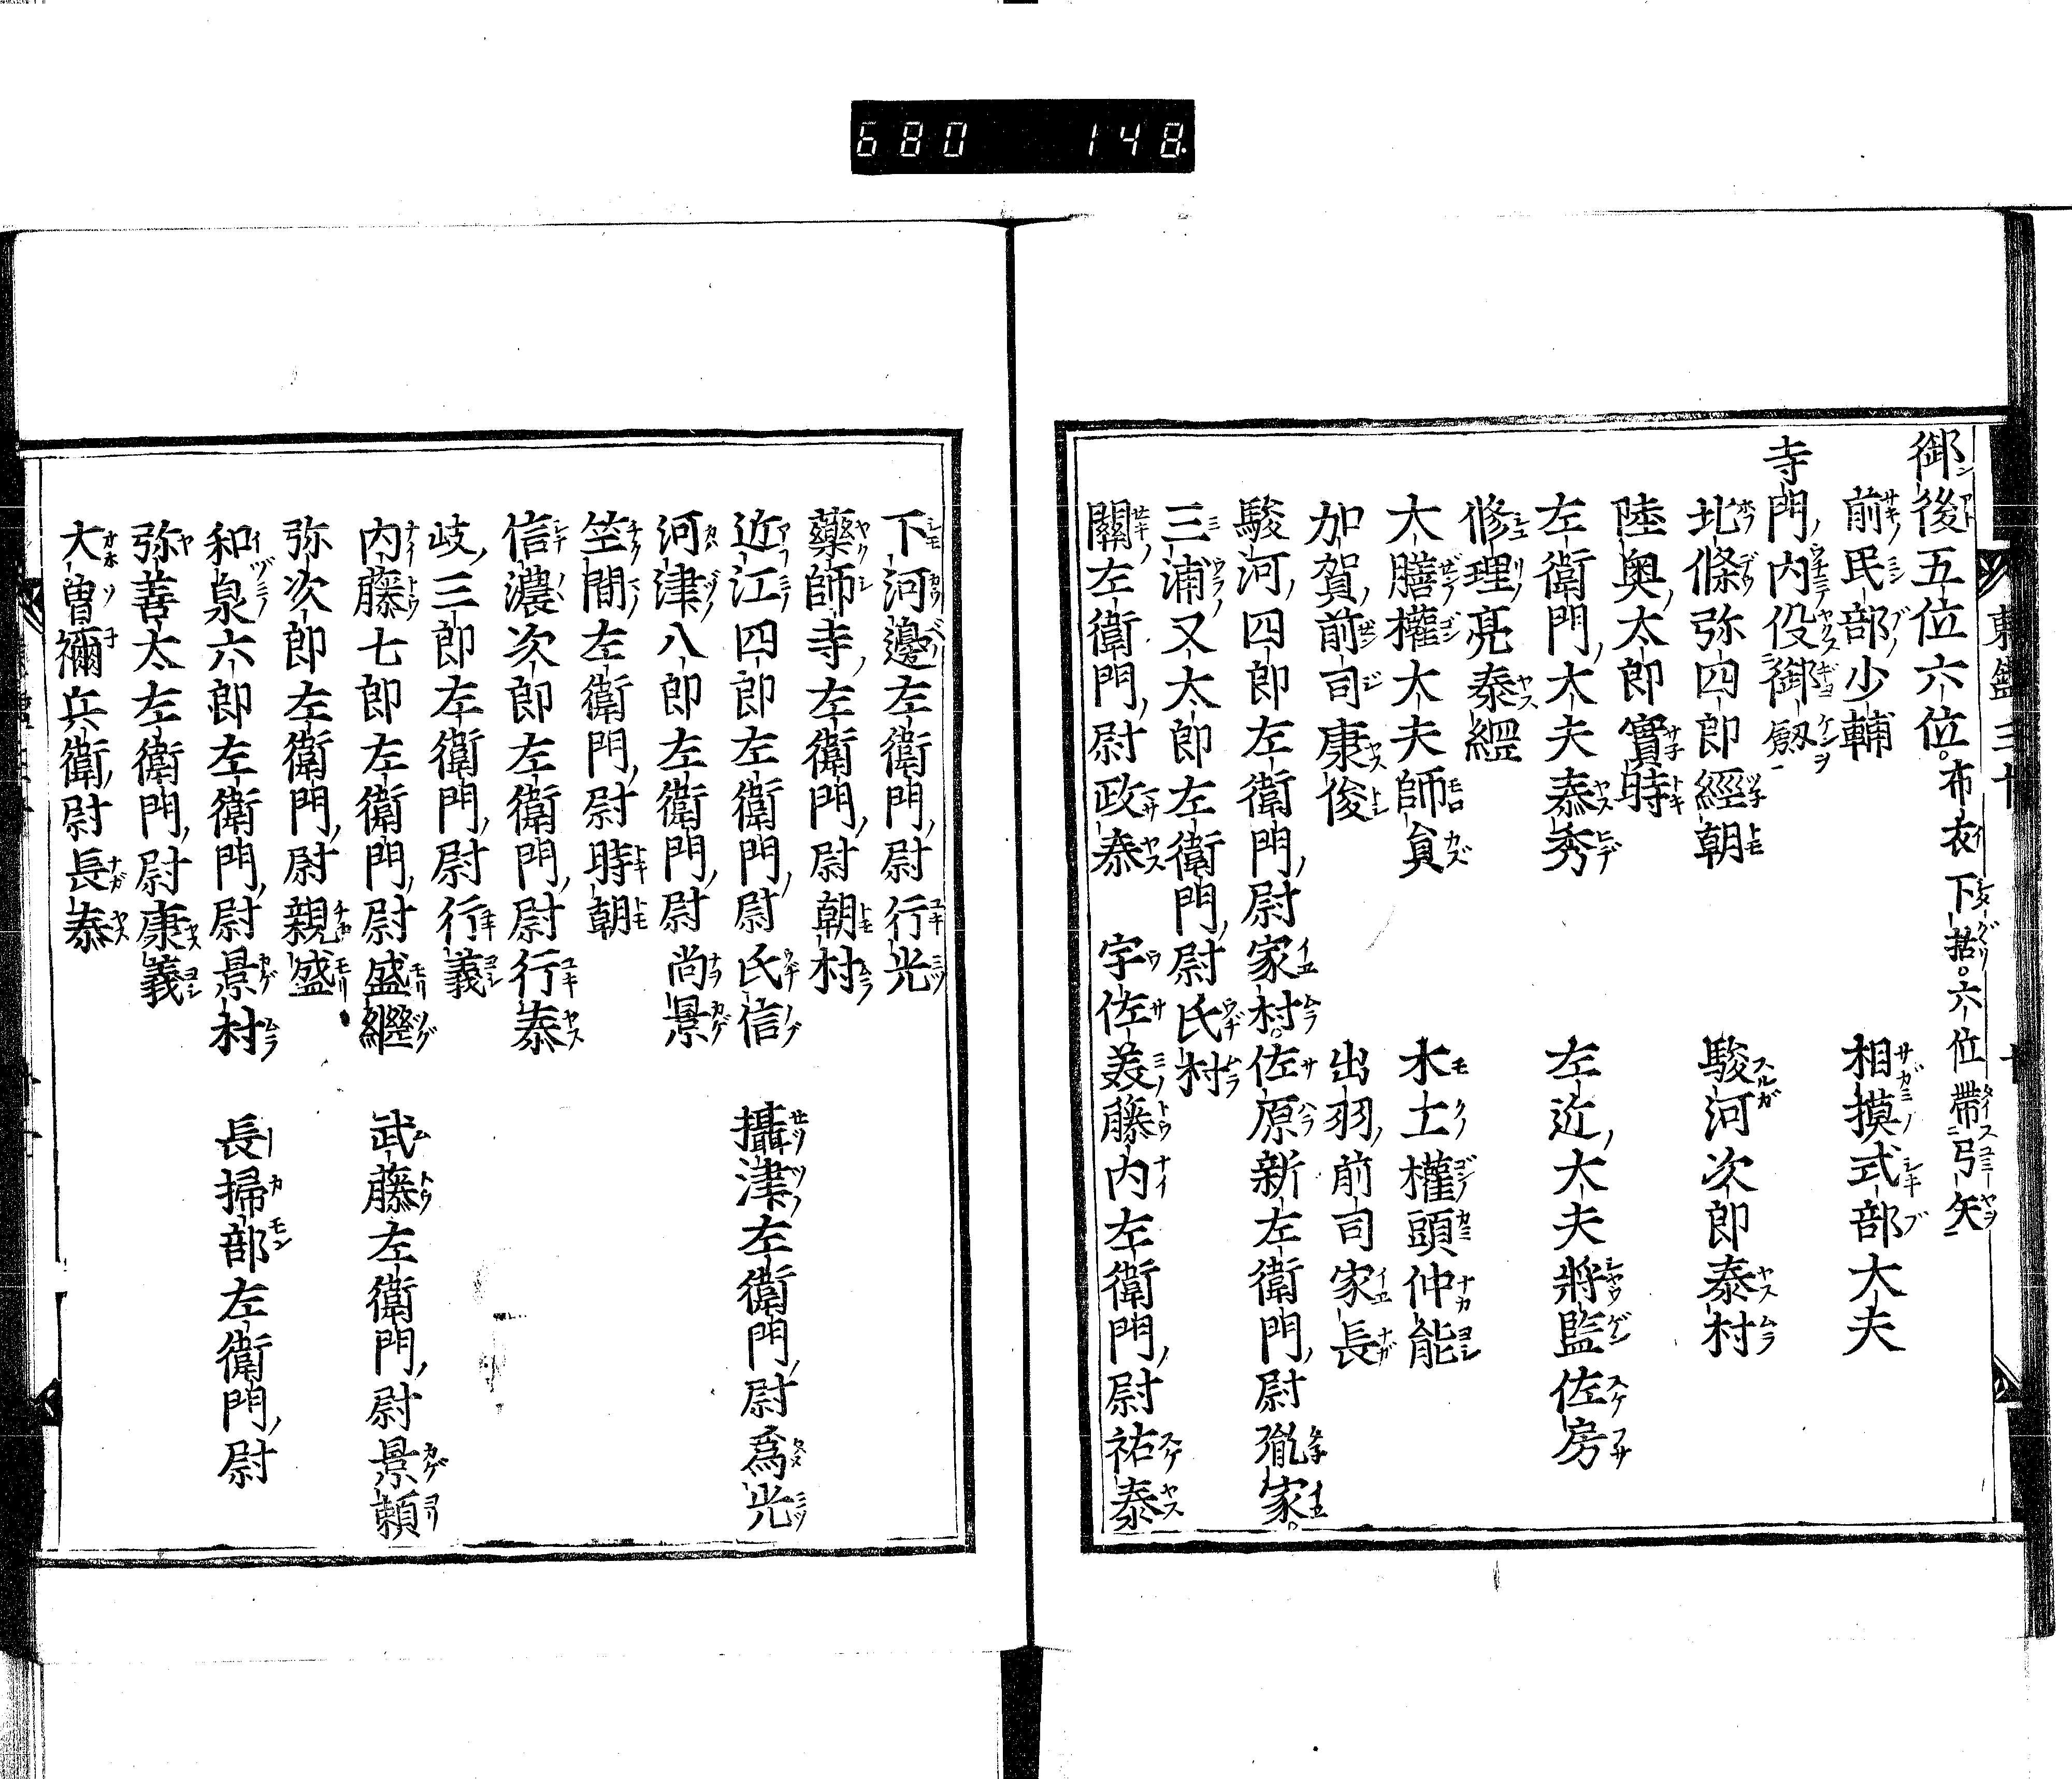 680 148
御後五位六位。布衣下括。六位帶弓矢
前民部少輔 相摸式部大夫
寺門内役御劔
北條弥四郎經朝 駿河次郎泰村
陸奥太郎實時
左衛門大夫泰秀 左近大夫將監佐房
修理亮泰綱
大膳權大夫師員 木工權頭仲能
加賀前司康俊 出羽前司家長
駿河四郎左衛門尉家村。佐原新左衛門尉胤家。
三浦又太郎左衛門尉氏村
關左衛門尉政泰 宇佐美藤内左衛門尉祐泰
下河邊左衛門尉行光
藥師寺左衛門尉朝村
近江四郎左衛門尉氏信 攝津左衛門尉爲光
河津八郎左衛門尉尚景
笠間左衛門尉時朝
信濃次郎左衛門尉行泰
岐三郎左衛門尉行義
内藤七郎左衛門尉盛繼 武藤左衛門尉景頼
弥次郎左衛門尉親盛
和泉六郎左衛門尉景村 長掃部左衛門尉
弥善太左衛門尉康義
大曽禰兵衛尉長泰